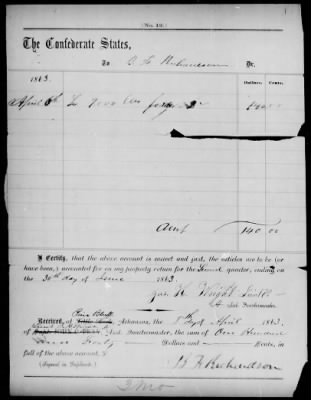 (No. 12.)
The Confederate States,
To B. F. Richardson Dr.
Dollars. Cents.
1863.
April 8th To 7000 lbs fodder 2c 140 00
Amt 140 00
I Certify, that the above account is correct and just, the articles are to be (or
have been,) accounted for on my property return for the Second quarter, ending on
the 30th day of June 1863.
Jas. H. Wright
A Asst Quartermaster.
Received, at Pine Bluff, Arkansas, the 8th of April 1863,
of Asst. Quartermaster, the sum of One Hundred
and Forty Dollars and — Cents, in
full of the above account.
(Signed in Duplicate.)
B F Richardson